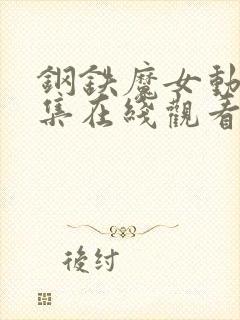 鋼鉄魔女動
集在綫觀看
後紂